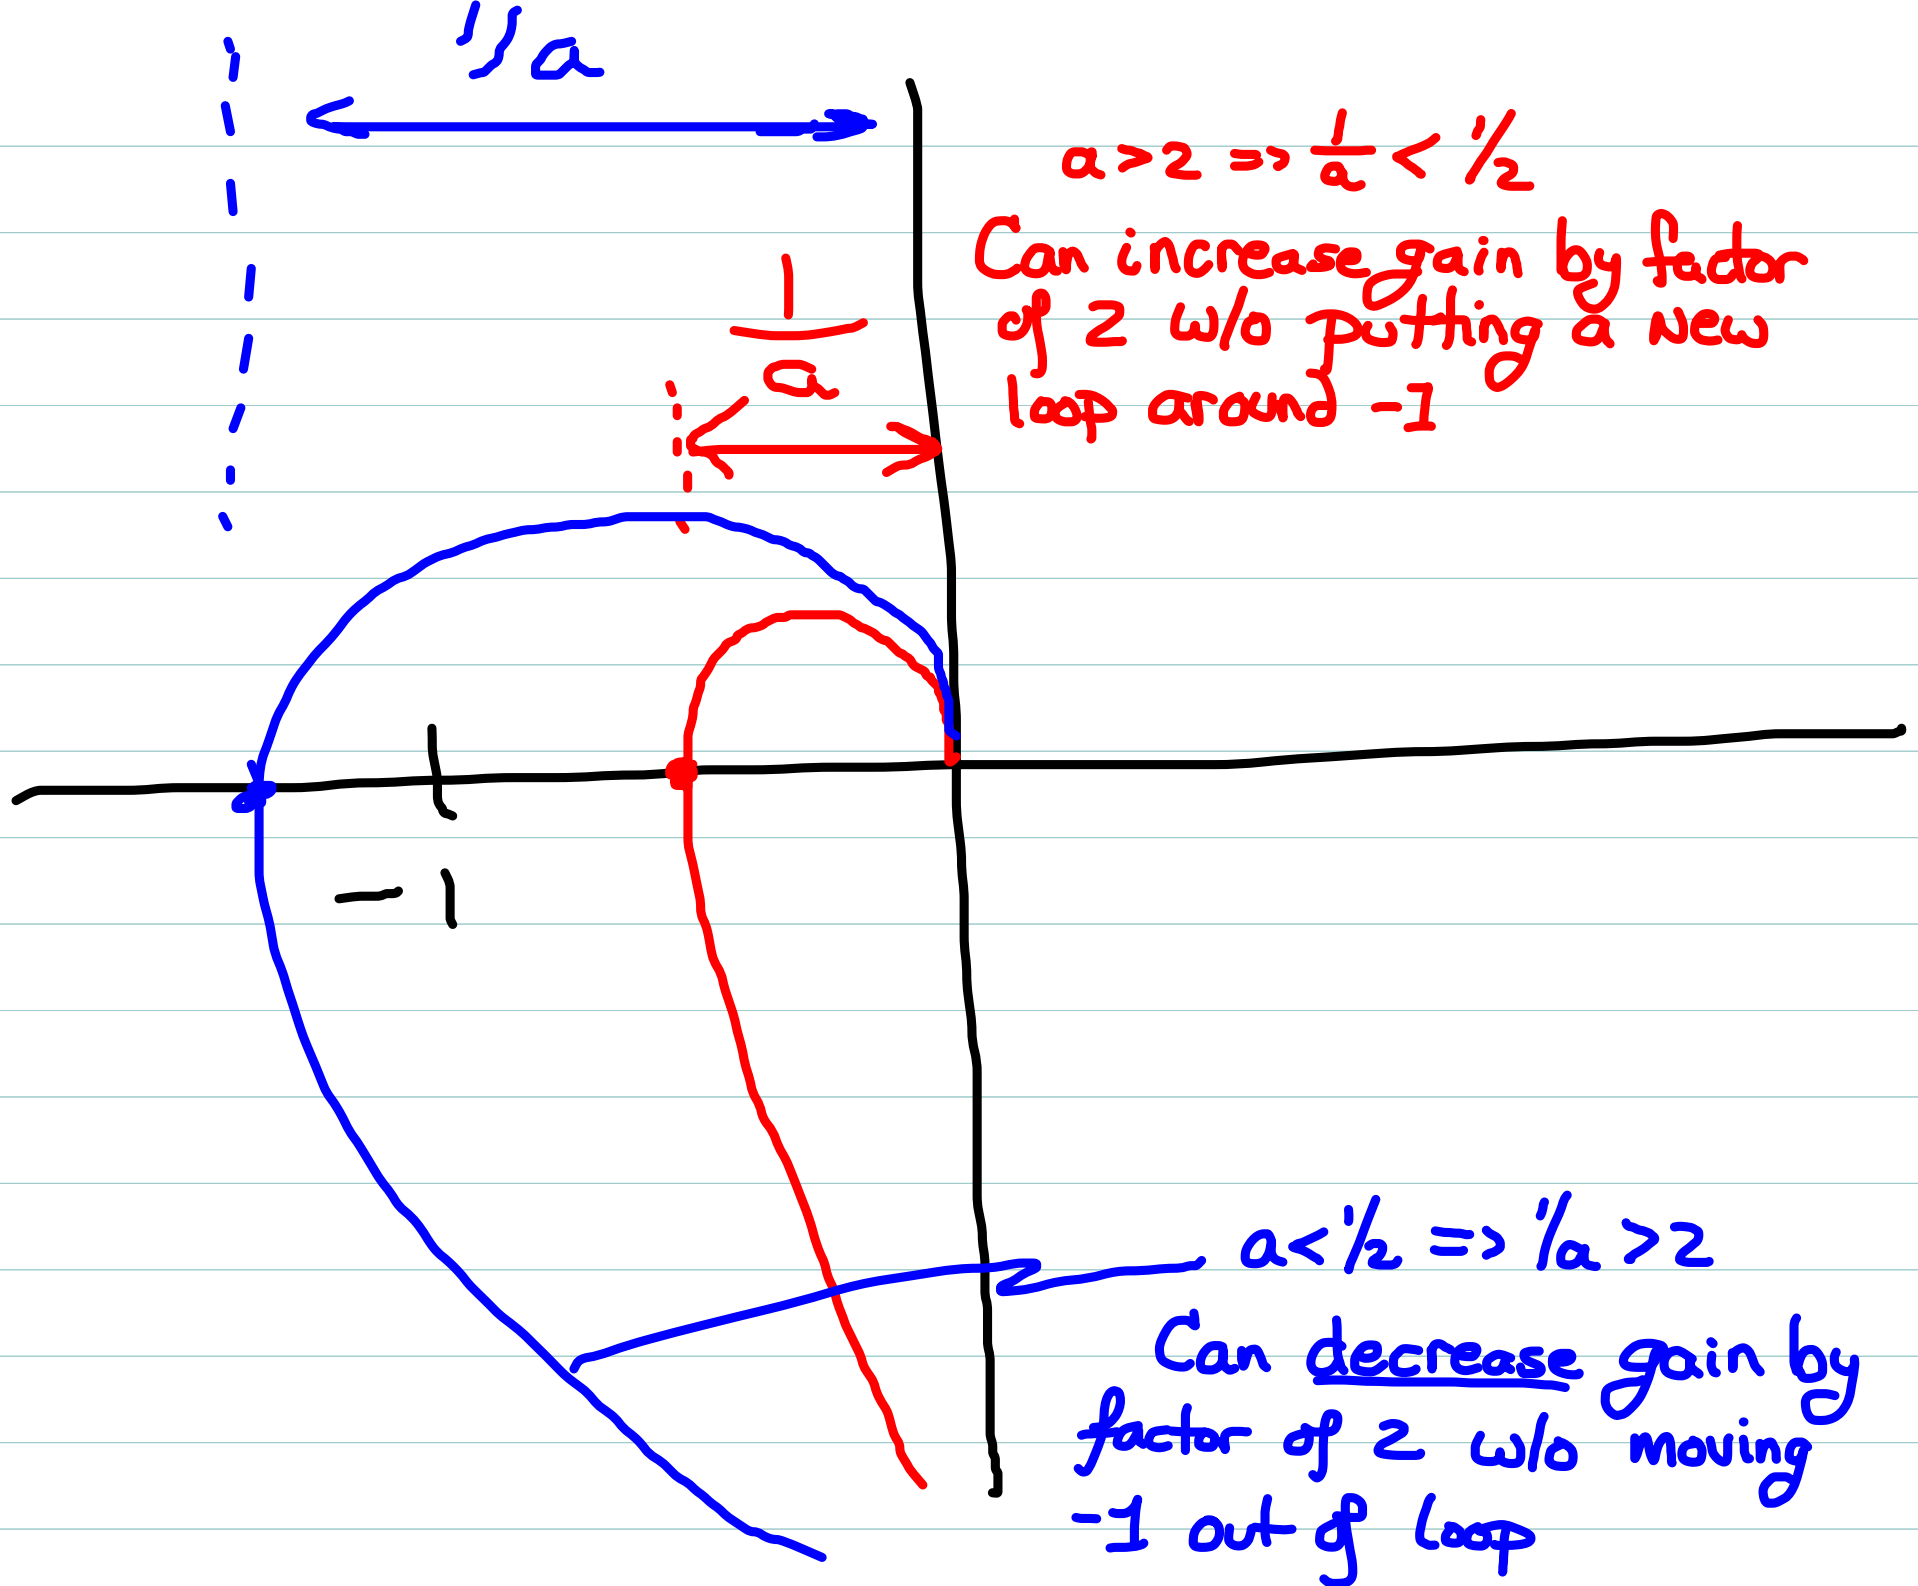 1/a
a>2 => 1/a < 1/2
Can increase gain by factor
of 2 w/o putting a new
loop around -1
1/a
-1
a<1/2 => 1/a >2
Can decrease gain by
factor of 2 w/o moving
-1 out of loop